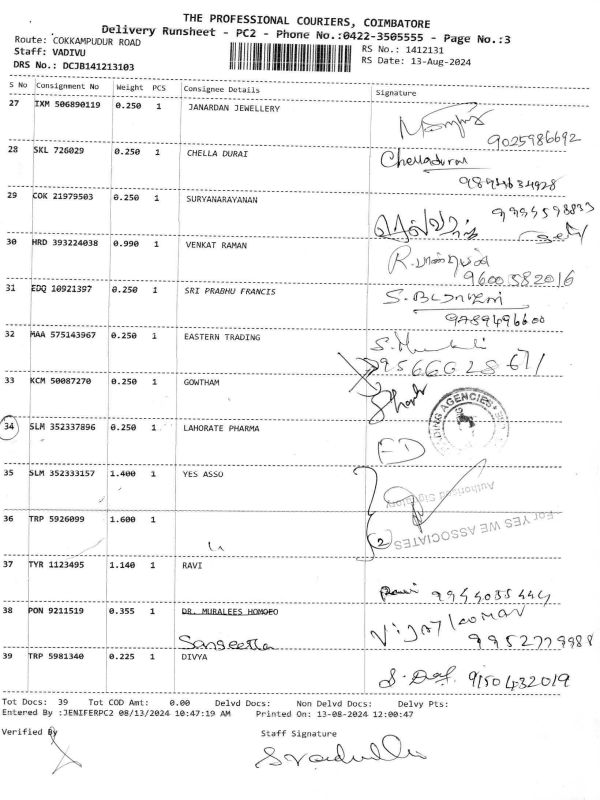 THE PROFESSIONAL COURIERS, COIMBATORE
Delivery Runsheet - PC2 - Phone No.:0422-3505555 - Page No.:3
Route: COKKAMPUDUR ROAD
RS No.: 1412131
Staff: VADIVU
RS Date: 13-Aug-2024
DRS No.: DCJB141213103
S No Consignment No Weight PCS Consignee Details Signature
27 IXM 506890119 0.250 1 JANARDAN JEWELLERY
9025986692
28 SKL 726029 0.250 1 CHELLA DURAI Chelladurai
29 COK 21979503 0.250 1 SURYANARAYANAN
30 HRD 393224038 0.990 1 VENKAT RAMAN
9600582016
31 EDQ 10921397 0.250 1 SRI PRABHU FRANCIS
9789496600
32 MAA 575143967 0.250 1 EASTERN TRADING
9566628671
33 KCM 50087270 0.250 1 GOWTHAM
34 SLM 352337896 0.250 1 LAHORATE PHARMA
AGENCIES
35 SLM 352333157 1.400 1 YES ASSO
Authorised Signatory
36 TRP 5926099 1.600 1
For YES WE ASSOCIATES
2
37 TYR 1123495 1.140 1 RAVI
Ravi
38 PON 9211519 0.355 1 DR. MURALEES HOMOEO
Vijaykumar
Sangeetha
9952779988
39 TRP 5981340 0.225 1 DIVYA
9150432019
Tot Docs: 39 Tot COD Amt: 0.00 Delvd Docs: Non Delvd Docs: Delvy Pts:
Entered By :JENIFERPC2 08/13/2024 10:47:19 AM Printed On: 13-08-2024 12:00:47
Verified By Staff Signature